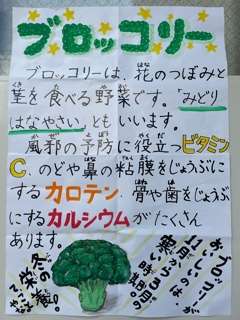 ブロッコリー
ブロッコリーは、花のつぼみと
茎を食べる野菜です。「みどり
はなやさい」ともいいます。
風邪の予防に役立つビタミン
C、のどや鼻の粘膜をじょうぶに
するカロテン、骨や歯をじょうぶ
にするカルシウムがたくさん
あります。
ブロッコリーが
おいしいのは
11月から3月の
寒い時期。